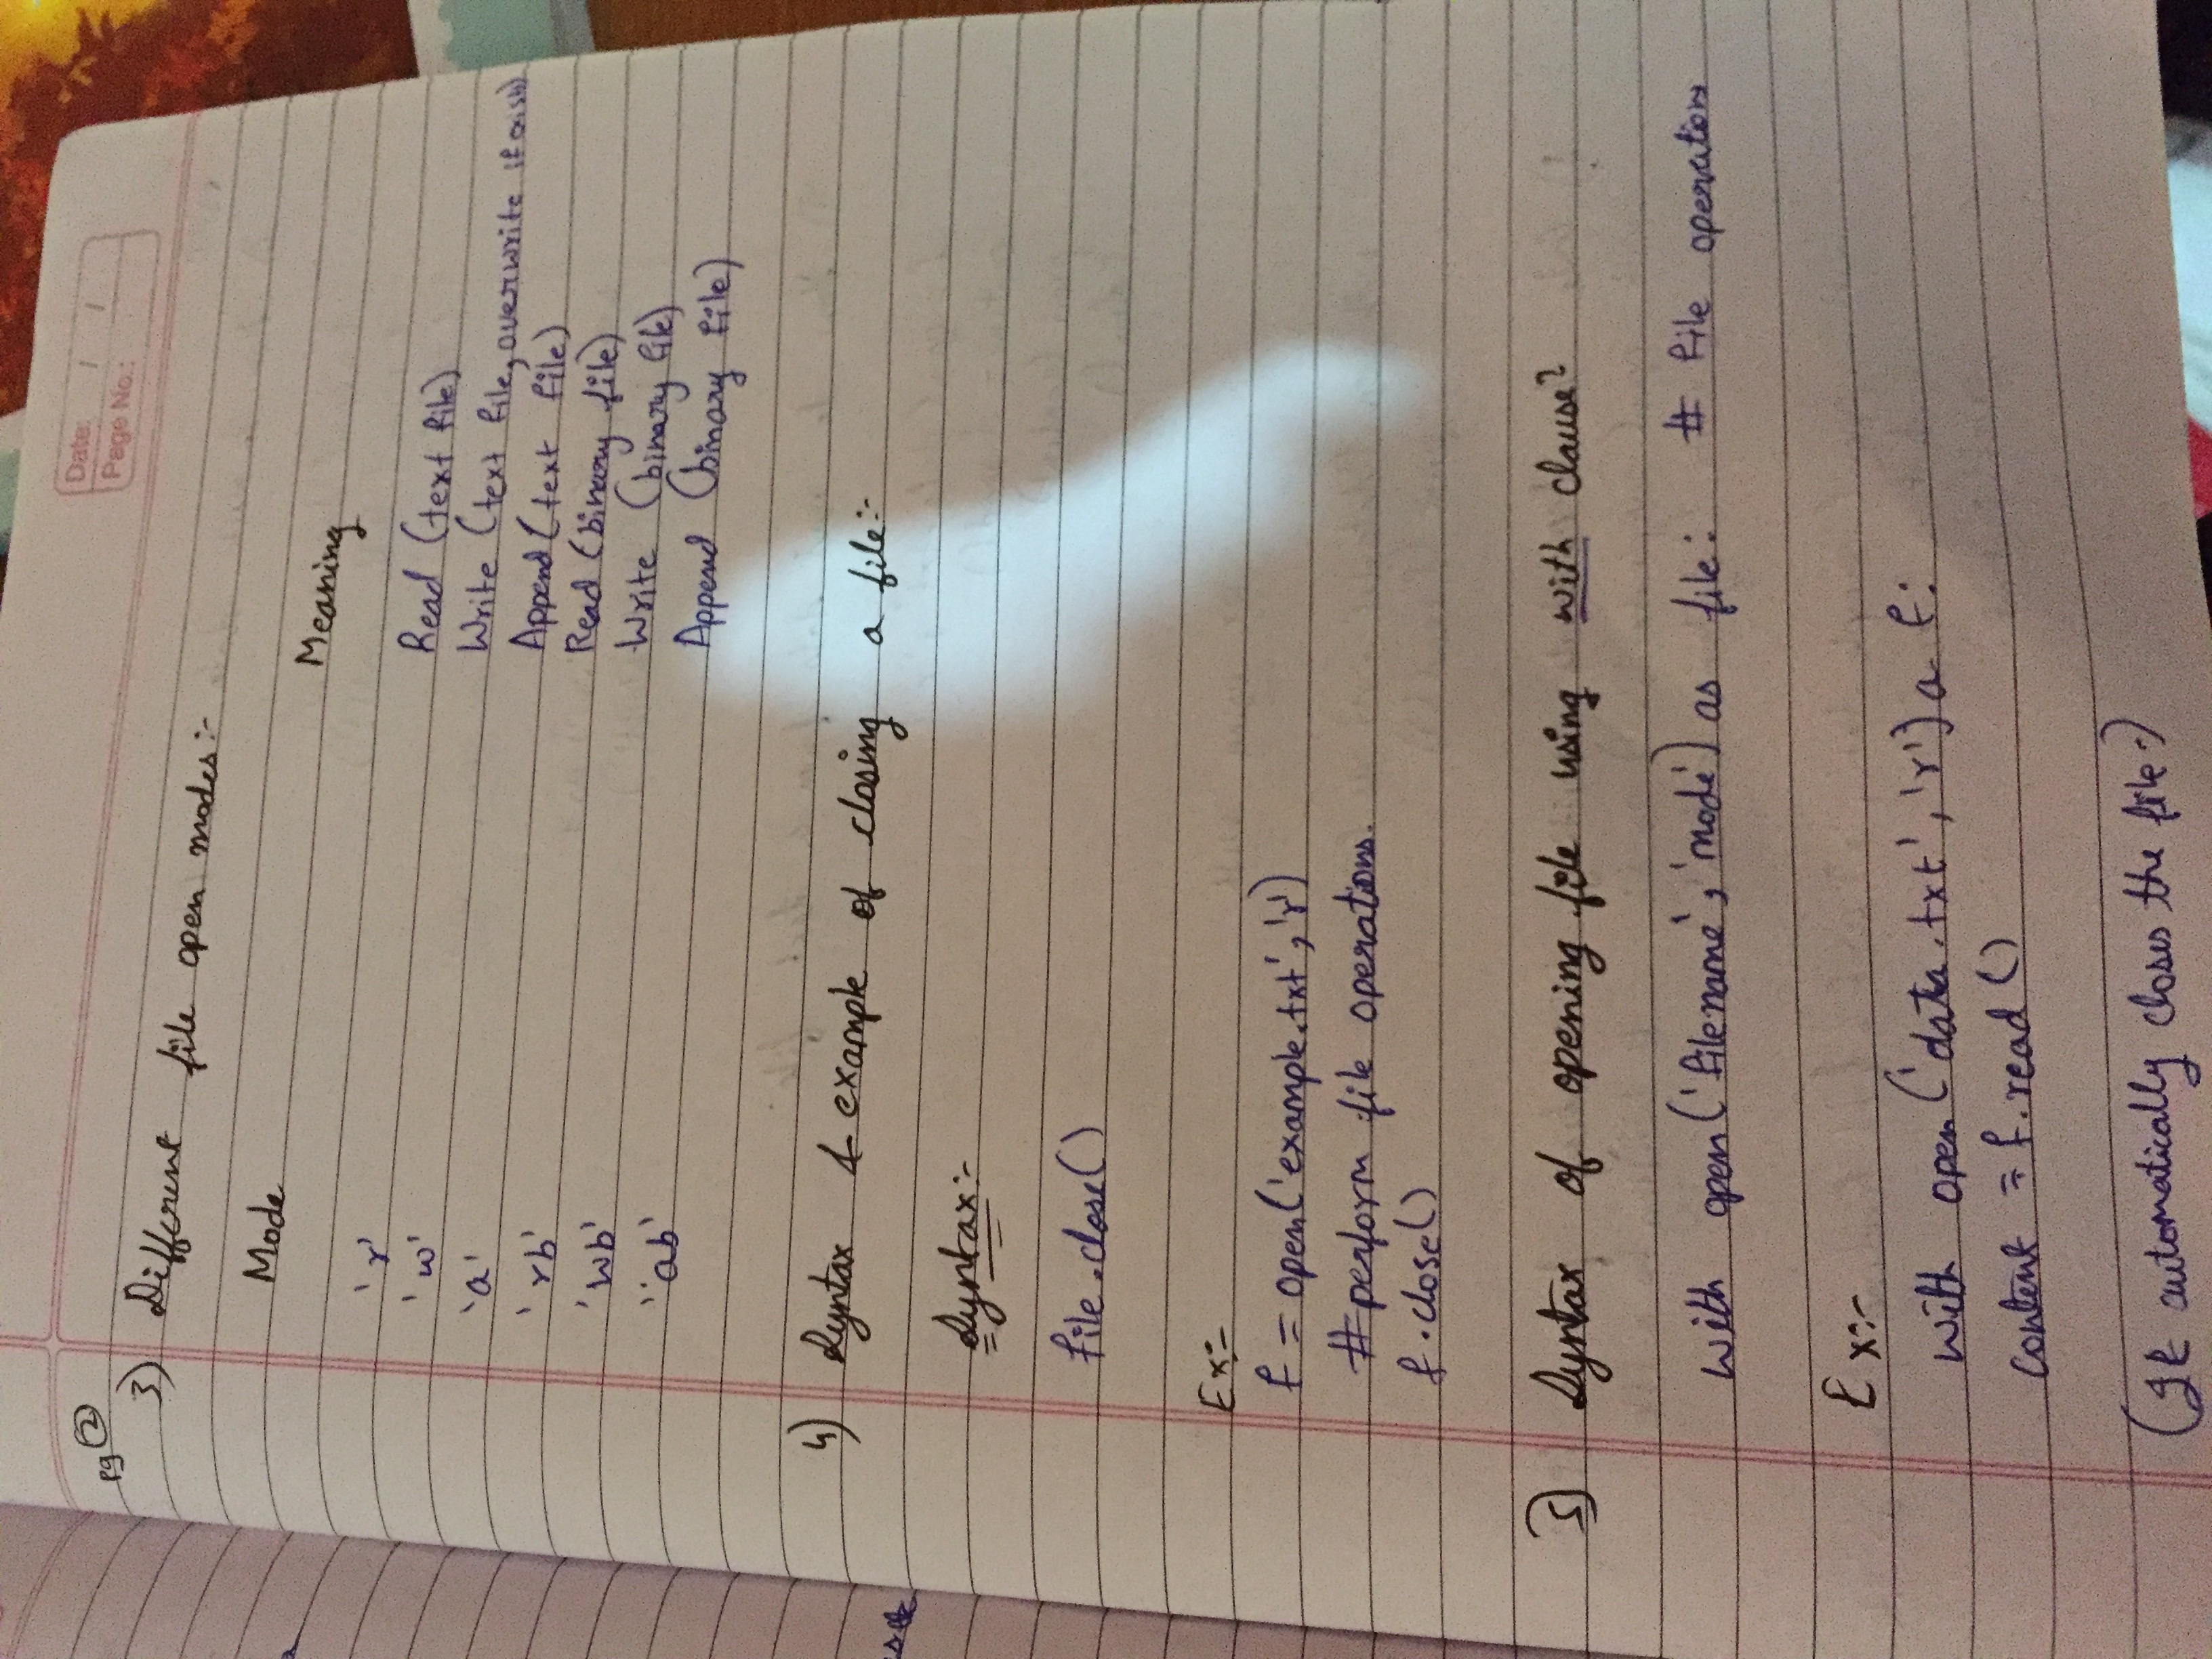 pg 2
Date: / /
Page No.:
3) Different file open modes:-
Mode Meaning
'r' Read (text file)
'w' Write (text file, overwrite if exists)
'a' Append (text file)
'rb' Read (binary file)
'wb' Write (binary file)
'ab' Append (binary file)
4) Syntax & example of closing a file:-
Syntax:-
file.close()
Ex:-
f = open('example.txt', 'r')
#perform file operations.
f.close()
5) Syntax of opening file using with clause?
with open('filename', 'mode') as file: # file operations
Ex:-
with open('data.txt', 'r') a f:
content = f.read()
(It automatically closes the file.)